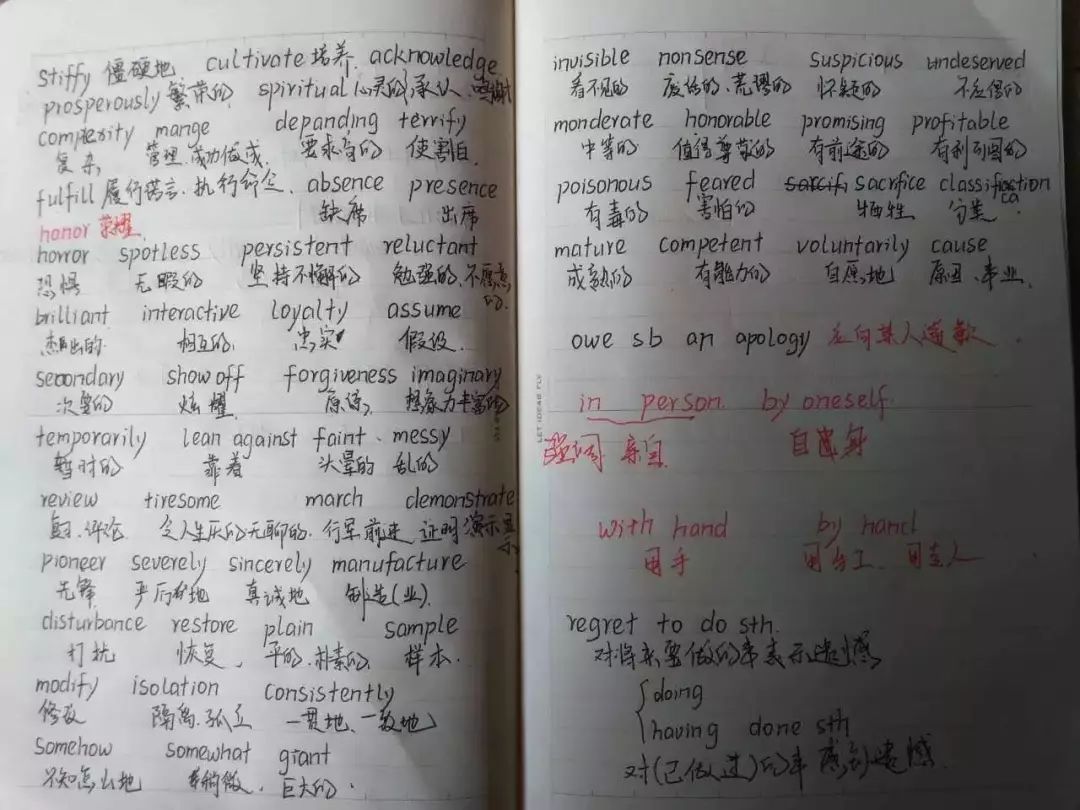 stiffy 僵硬地 cultivate 培养. acknowledge
prosperously 繁荣的 spiritual 心灵的 承认、
complexity mange depanding terrify
复杂, 管理.成功做成, 要求高的 使害怕.
fulfill 履行诺言、执行命令. absence presence
缺席 出席
honor 荣耀
horror spotless persistent reluctant
恐惧 无暇的 坚持不懈的 勉强的.不愿意
的.
brilliant interactive loyalty assume
杰出的 相互的. 忠实 假设.
secondary show off forgiveness imaginary
次要的 炫耀 原谅, 想象力丰富的
temporarily lean against faint、messy
暂时的 靠着 头晕的 乱的
review tiresome march demonstrate
复习.评论 令人生厌的无聊的. 行军前进 证明 演示显
示
pioneer severely sincerely manufacture
先锋 严厉地 真诚地 制造(业).
disturbance restore plain sample
打扰 恢复, 平的.朴素的. 样本.
modify isolation consistently
修改 隔离.孤立 一贯地、一致地
somehow somewhat giant
不知怎么地 稍微. 巨大的.
invisible nonsense suspicious undeserved
看不见的 废话的、荒谬的 怀疑的 不应得的
monderate honorable promising profitable
中等的 值得尊敬的 有前途的 有利可图的
poisonous feared sacrfice classification
ca
有毒的 害怕的 牺牲 分类.
mature competent voluntarily cause
成熟的 有能力的 自愿地 原因、事业.
owe sb an apology 应向某人道歉.
in person. by oneself.
强调 亲自
with hand by hand
用手 用手工.
regret to do sth.
对将来要做的事表示遗憾
{doing
having done sth
对(已做过)的事感到遗憾.